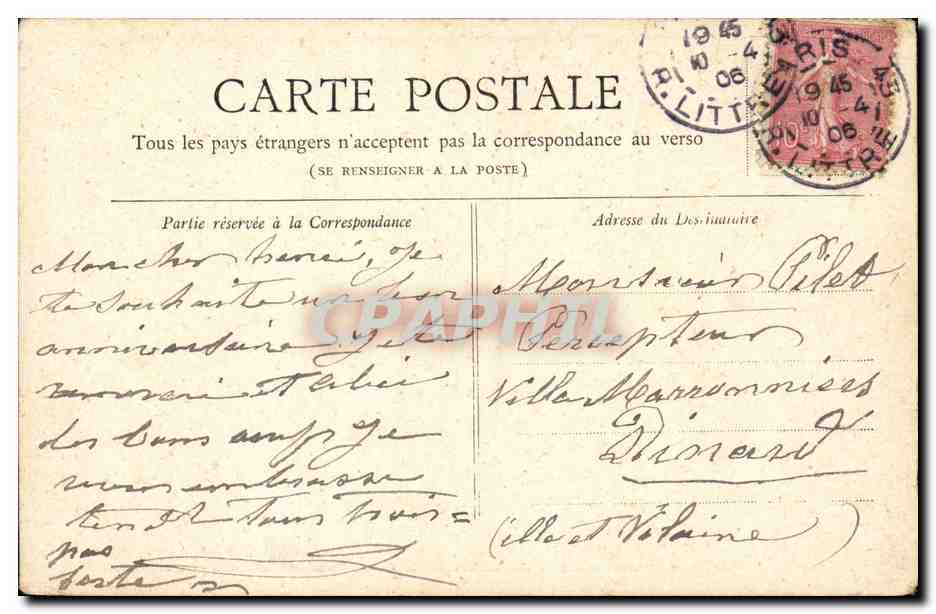 CARTE POSTALE
Tous les pays étrangers n'acceptent pas la correspondance au verso
(SE RENSEIGNER A LA POSTE)
19 45
10 - 4
06
R. LITTRE
PARIS 43
19 45
10 - 4
06
R. LITTRE
10
Partie réservée à la Correspondance
Mon cher, je
te souhaite un bon
anniversaire
des bons œufs je
vous embrasse
tous trois
pas
Adresse du Destinataire
Monsieur Pilet
Percepteur
Villa Marronniers
Dinard
(ille et Vilaine)
CPAPHIL